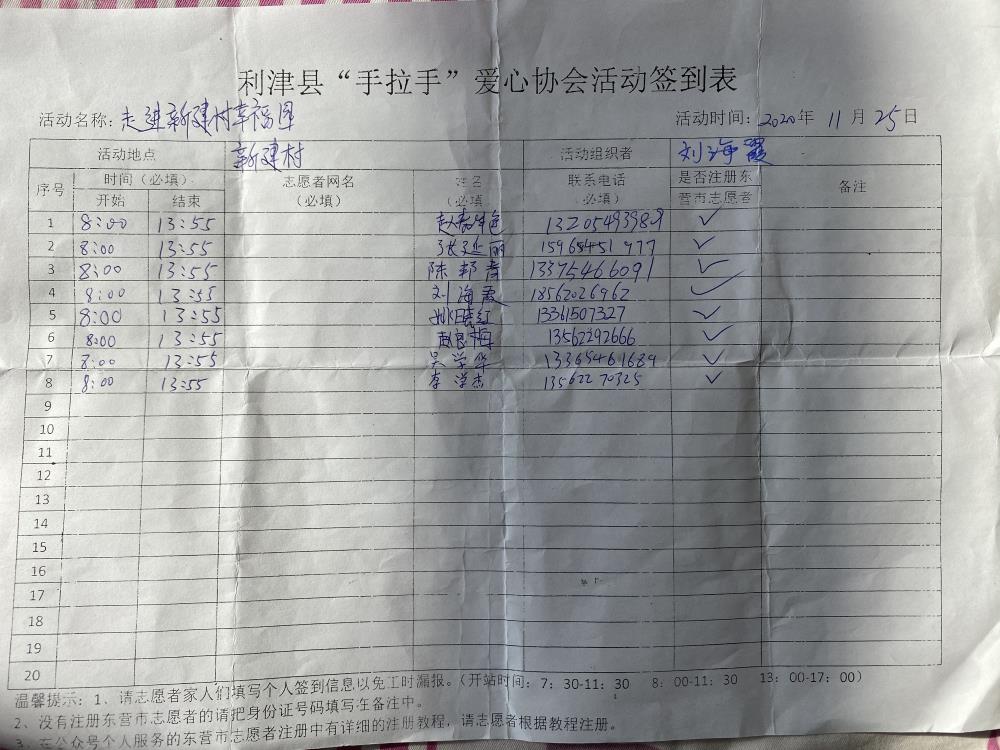 利津县“手拉手”爱心协会活动签到表
活动名称: 走进新建村幸福园 活动时间: 2020年 11月 25日
活动地点 新建村 活动组织者 刘海霞
序号 时间(必填) 志愿者网名(必填) 姓名(必填) 联系电话(必填) 是否注册东营市志愿者 备注
开始 结束
1 8:00 13:55 13205493989 ✓
2 8:00 13:55 张延丽 15965451977 ✓
3 8:00 13:55 陈邦青 13375466091 ✓
4 8:00 13:55 刘海霞 18562026962 ✓
5 8:00 13:55 姚晓红 13361507327 ✓
6 8:00 13:55 赵良梅 13562292666 ✓
7 8:00 13:55 吴学华 13365461684 ✓
8 8:00 13:55 李学杰 13562270325 ✓
9
10
11
12
13
14
15
16
17
18
19
20
温馨提示: 1、请志愿者家人们填写个人签到信息以免工时漏报。(开站时间: 7: 30-11: 30 8: 00-11: 30 13: 00-17: 00)
2、没有注册东营市志愿者的请把身份证号码填写在备注中。
3、在公众号个人服务的东营市志愿者注册中有详细的注册教程,请志愿者根据教程注册。